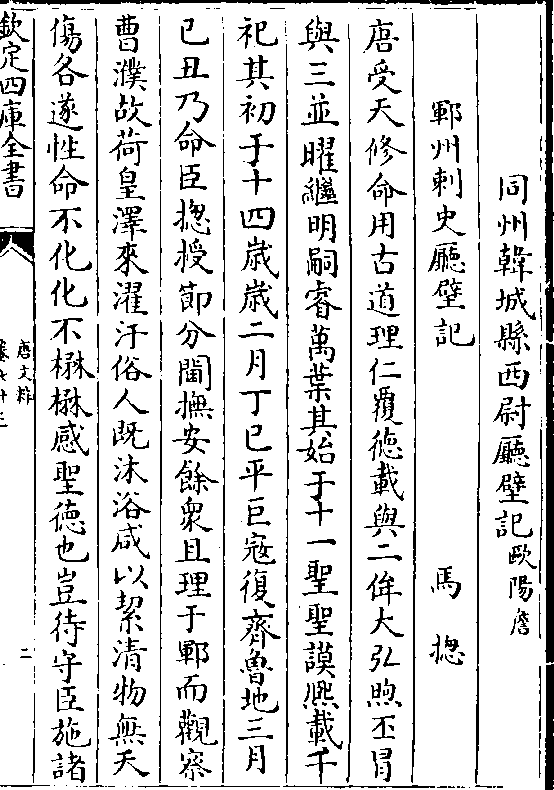 同州韓城縣西尉廳壁記歐陽詹
鄆州刺史廳壁記　馬摠
唐受天修命用古道理仁覆徳載與二侔大弘煦丕冒
與三並曜繼明嗣睿萬葉其始于十一聖聖謨熈載千
祀其初于十四歳歳二月丁巳平巨寇復齊魯地三月
己丑乃命臣摠授節分閫撫安餘衆且理于鄆而觀察
曹濮故荷皇澤來濯汙俗人既沐浴咸以絜清物無夭
傷各遂性命不化化不楙楙感聖徳也豈待守臣施諸
欽定四庫全書
唐文粹
卷七十三
二